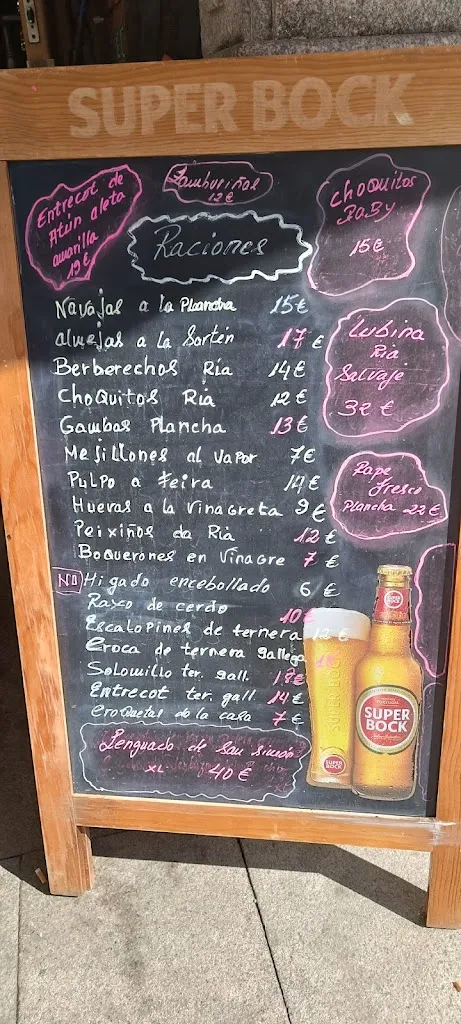 SUPER BOCK
Entrecot de
Atún aleta
amarilla
19 €
Zamburiñas
12 €
Raciones
CHOQUitos
BaBy
15 €
Navajas a la Plancha 15 €
Almejas a la Sartén 17 €
Berberechos Ría 14 €
CHOQUitos Ría 12 €
Gambas Plancha 13 €
Mejillones al vapor 7 €
Pulpo a Feira 14 €
Huevas a la vinagreta 9 €
Peixiños da Ría 12 €
Boquerones en vinagre 7 €
Hígado encebollado 6 €
Raxo de cerdo 10 €
Escalopines de ternera 12 €
Croca de ternera gallega
Solomillo ter. gall. 18 €
Entrecot ter. gall 14 €
Croquetas de la casa 7 €
Lubina
Ría
Salvaje
32 €
Rape
Fresco
Plancha 22 €
Lenguado de San Simón
XL 40 €
SUPER
BOCK
SUPER BOCK
SUPER
BOCK